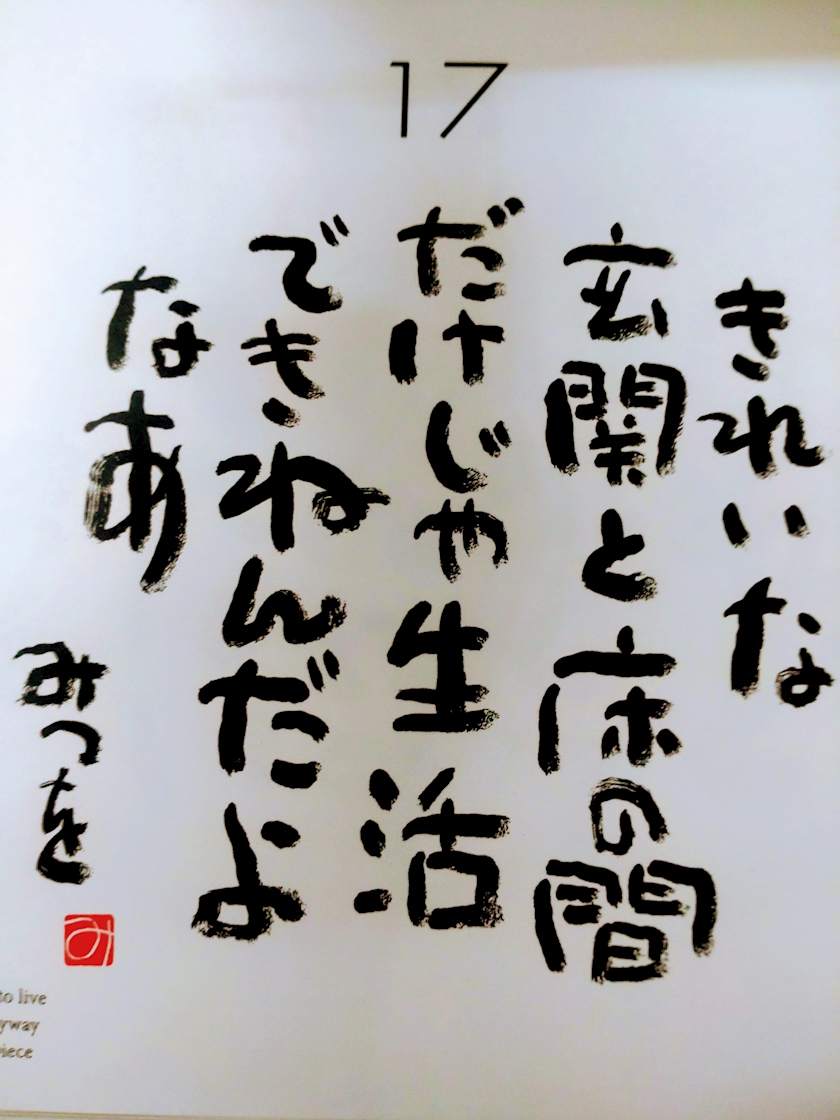 17
きれいな
玄関と床の間
だけじゃ生活
できねんだよ
なあ
みつを
み
to live
yway
piece